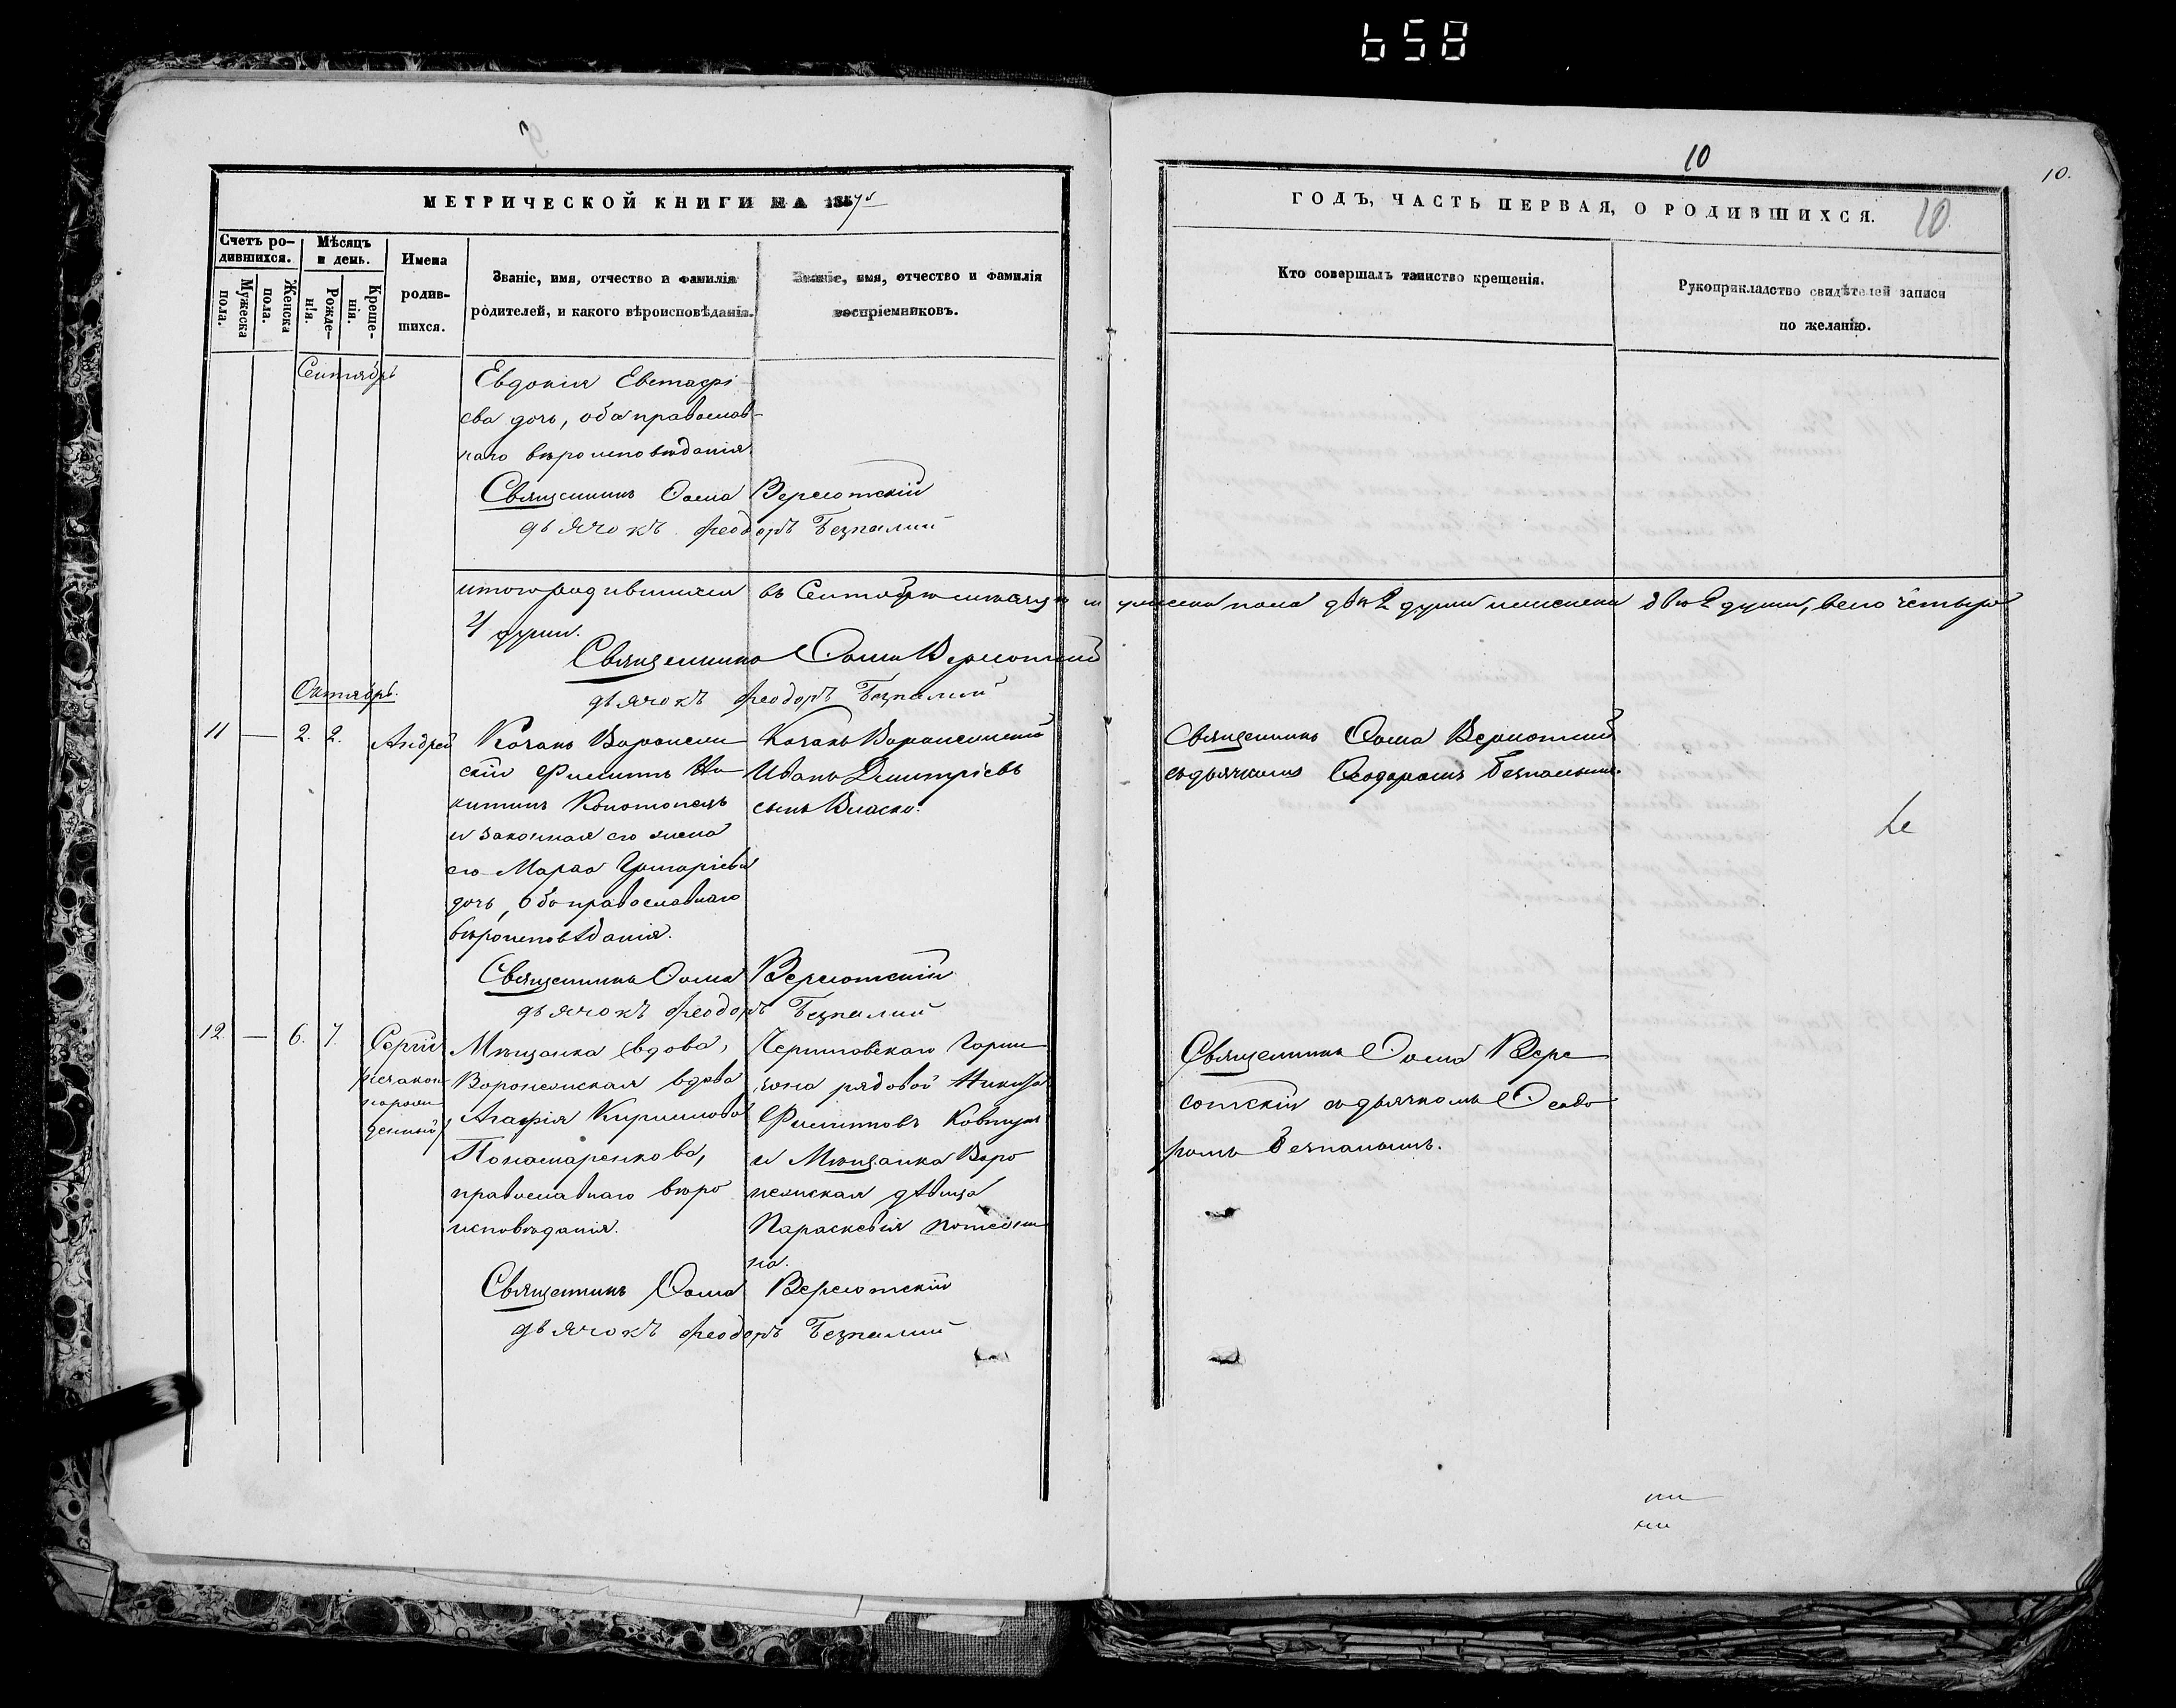 658
10
10.
10
МЕТРИЧЕСКОЙ КНИГИ НА 1857й
ГОДЪ, ЧАСТЬ ПЕРВАЯ, О РОДИВШИХСЯ.
Счетъ ро-
дившихся.
Мужеска
пола.
Женска
пола.
Мѣсяцъ
и день.
Рожде-
нія.
Креще-
нія.
Имена
родив-
шихся.
Званіе, имя, отчество и фамилія
родителей, и какого вѣроисповѣданія.
Званіе, имя, отчество и фамилія
воспріемниковъ.
Кто совершалъ таинство крещенія.
Рукоприкладство свидѣтелей записи
по желанію.
Сентябрь
Евдокія Евстафі
ева дочь, оба православ-
наго вѣроисповѣданія.
Священникъ Ѳома Вересотскій
дьячокъ Феодоръ Безпалий
итого родившихся въ Сентябрѣ мѣсяцѣ мужеска пола двѣ 2 души женска двѣ 2 души, всего четыре
4 души.
Священникъ Ѳома Вересотскій
дьячокъ Феодоръ Безпалий
Октябрь.
11 — 2. 2. Андрей
Козакъ Воронежи
скій Филиппъ Ни
китинъ Конотопецъ
и законная его жена
его Марѳа Григоріева
дочь, оба православнаго
вѣроисповѣданія.
Козакъ Воронежскій
Иванъ Дмитріевъ
сынъ Власко.
Священникъ Ѳома Вересотскій
съ дьячкомъ Ѳеодоромъ Безпалымъ.
Священникъ Ѳома Вересотскій
дьячокъ Феодоръ Безпалий
12. — 6. 7. Сергій
незакон
норож
денный
Мѣщанка вдова,
Воронежская вдова
Агафія Кирилова
Пономаренкова,
православнаго вѣро
исповѣданія.
Черниговскаго Гарни
зона рядовой Никита
Филипповъ Ковтунъ
и Мѣщанка Воро
нежская дѣвица
Параскевія
на.
Священникъ Ѳома Вере
сотскій съ дьячкомъ Ѳеодо
ромъ Безпалымъ.
Священникъ Ѳома Вересотскій
дьячокъ Феодоръ Безпалий